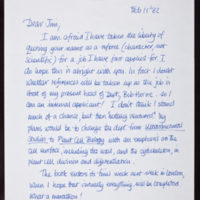 Feb 11th 82
Dear Jim,
I am afraid I have taken the liberty of
quoting your name as a referee (character, not
scientific) for a job I have just applied for. I
do hope this is alright with you. In fact I doubt
whether references will be taken up as the job is
that of my present head of Dept, Bob Horne. So I
am an internal applicant! I don't think I stand
much of a chance, but then "nothing ventured". My
plans would be to change the dept from Ultrastructural
Studies to Plant Cell Biology with an emphasis on the
cell surface, including the wall, and the cytoskeleton, in
plant cell division and differentiation.
The book editors to finish next week in London,
when I hope that virtually everything will be completed
What a marathon!